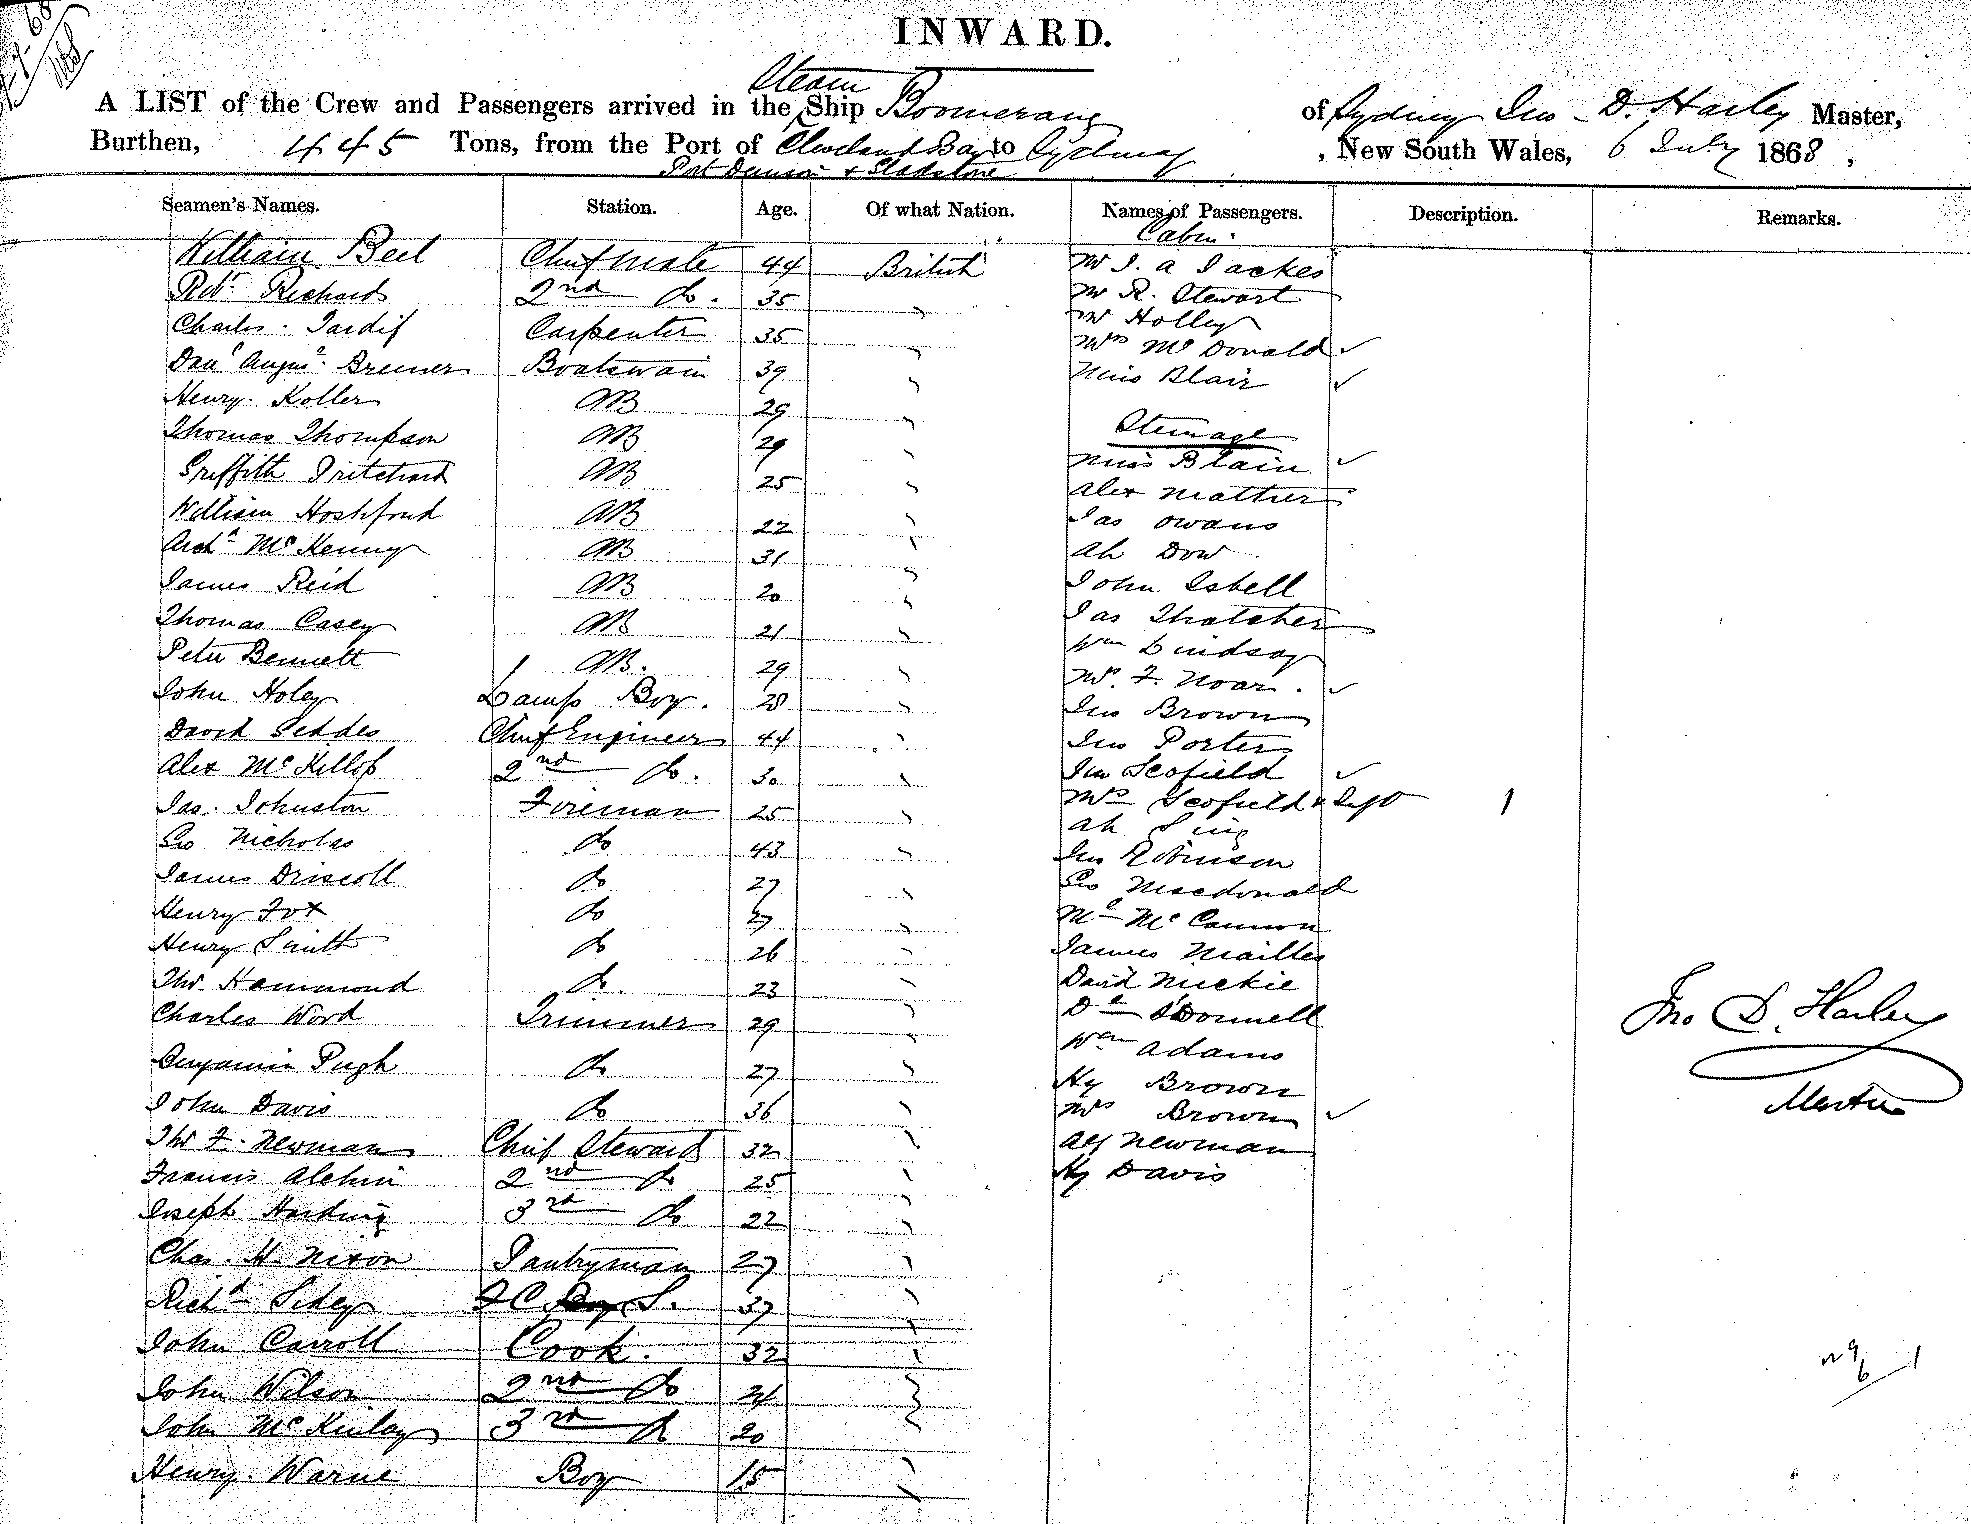 INWARD.
Steam
A LIST of the Crew and Passengers arrived in the Ship Boomerang of Sydney Jno D. Harley Master,
Burthen, 445 Tons, from the Port of Cleveland Bay to Sydney, New South Wales, 6 July 1868,
Port Denison & Gladstone
Seamen's Names. Station. Age. Of what Nation. Names of Passengers. Description. Remarks.
Cabin.
William Bell Chief Mate 44 British Mr J. A Jackes
Robt Richards 2nd do. 35 " Mr R. Stewart
Charles Tardif Carpenter 35 " Mr Holley
Augus Bremer Boatswain 39 " Mrs McDonald ✓
Henry Koller AB 29 " Miss Blair ✓
Thomas Thompson AB 29 " Steerage
Griffith Pritchard AB 25 " Miss Blain ✓
William AB 22 " Alex Mather
Archd McKenny AB 31 " Jas Owans
James Reid AB 20 " Ah Dow
Thomas Casey AB 21 " John Isbell
Peter Bennett AB. 29 " Jas Thatcher
John Holey Lamps Boy. 28 " Wm Lindsay
David Geddes Chief Engineer 44 " Mrs. F. Noar. ✓
Alex McKillop 2nd do. 30 " Jno Brown
Jas. Johnston Fireman 25 " Jno Porter
Geo Nicholas do 43 " Jno Scofield ✓
James Driscoll do 27 " Mrs Scofield & Inft 1
Henry Fox do 27 " Ah Sing
Henry Smith do 26 " Jno Robinson
Thos. Hammond do. 23 " Geo Macdonald
Charles Word Trimmer 29 " McCannon
Benjamin Pugh do 27 " James
John Davis do 36 " David Mickie
Thos F. Newman Chief Steward 32 " O'Donnell
Francis Alchin 2nd do 25 " Wm Adams
Joseph Harding 3rd do 22 " Hy Brown
Chas. H. Nixon Pantryman 27 " Mrs Brown ✓
Richd Sidey F C S. 37 " Alf Newman
John Carroll Cook. 32 " Hy Davis
John Wilson 2nd do 24 "
John McKinlay 3rd do 20 "
Henry Warne Boy 15 "
Jno D. Harley
Master